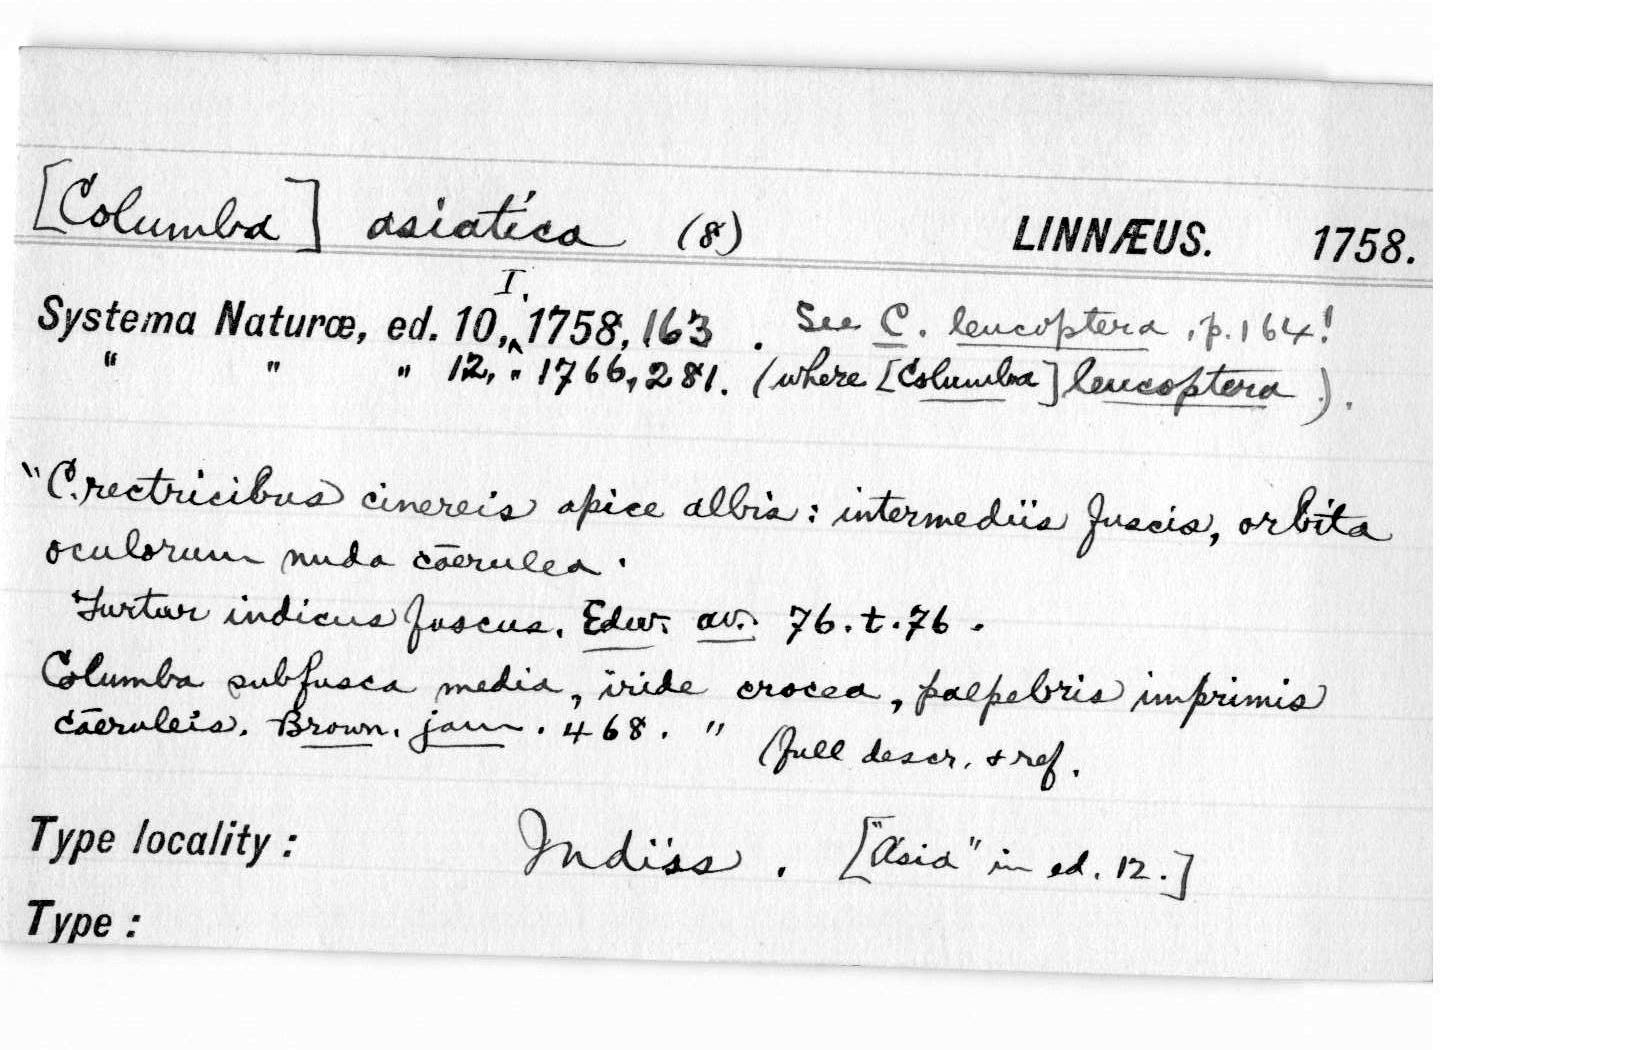 [Columba] asiatica (8) LINNÆUS. 1758.
I.
Systema Naturæ, ed. 10,^1758, 163 . See C. leucoptera, p.164!
" " " 12, " 1766, 281. (where [Columba] leucoptera).
"C. rectricibus cinereis apice albis: intermediis fuscis, orbita
oculorum nuda cæerulea.
Turtur indicus fuscus. Edw. av. 76. t. 76.
Columba subfusca media, iride crocea, palpebris imprimis
cæeruleis. Brown. jam. 468." (full descr. + ref.
Type locality: Indiis. ["Asia" in ed. 12.]
Type: